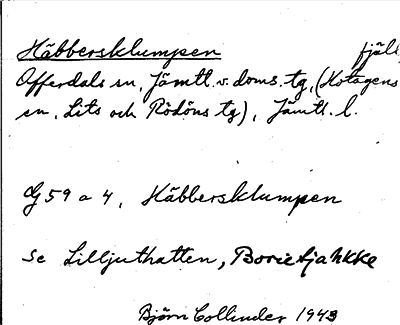 Häbbersklumpen fjäll
Offerdals sn, Jämtl. v. doms. tg, (Hotagens
sn, Lits och Rödöns tg), Jämtl. l.
G 59 a 4, Häbbersklumpen
Se Lilljuthatten, Borietjahkke
Björn Collinder 1943